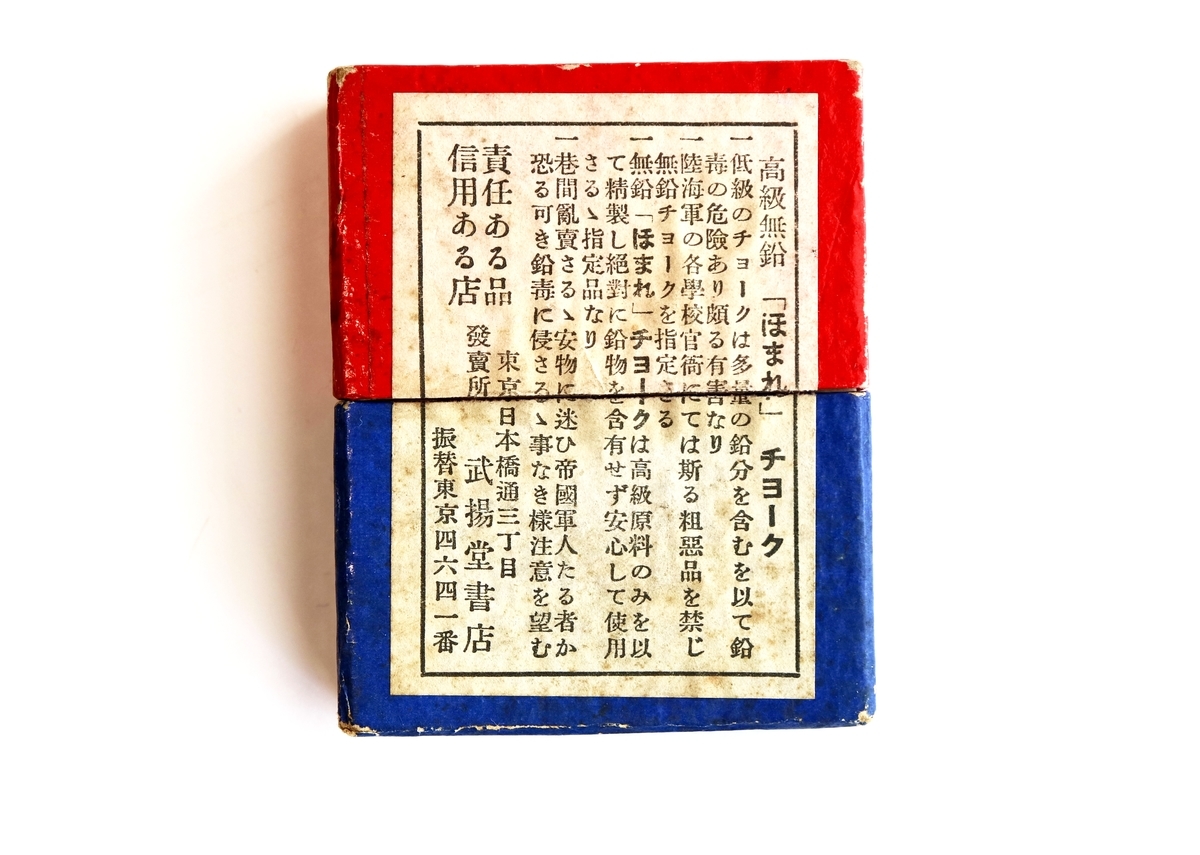 高級無鉛 「ほまれ」 チヨーク
一低級のチョークは多量の鉛分を含むを以て鉛
毒の危險あり頗る有害なり
一陸海軍の各學校官衙にては斯る粗惡品を禁じ
無鉛チョークを指定さる
一無鉛「ほまれ」チヨークは高級原料のみを以
て精製し絕對に鉛物を含有せず安心して使用
さるゝ指定品なり
一巷間亂賣さるゝ安物に迷ひ帝國軍人たる者か
恐る可き鉛毒に侵さるゝ事なき樣注意を望む
責任ある品
信用ある店
東京日本橋通三丁目
發賣所 武揚堂書店
振替東京四六四一番